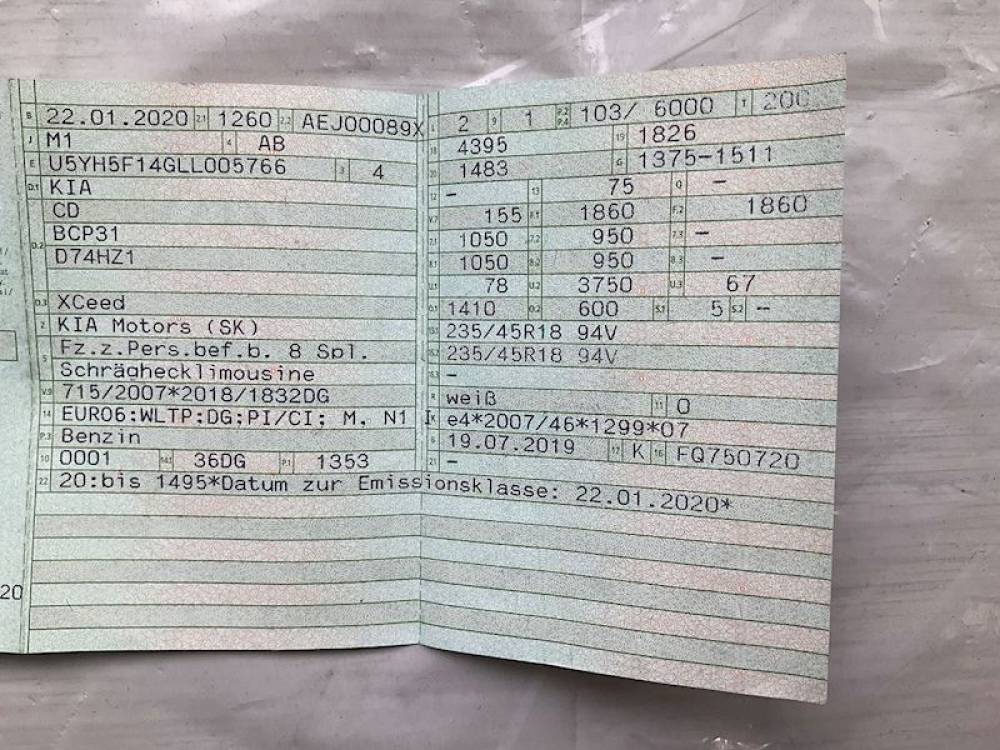 B 22.01.2020 2.1 1260 2.2 AEJ00089X
J M1 4 AB
E U5YH5F14GLL005766 3 4
D.1 KIA
CD
D.2 BCP31
D74HZ1
D.3 XCeed
2 KIA Motors (SK)
5 Fz.z.Pers.bef.b. 8 Spl.
Schräghecklimousine
V.9 715/2007*2018/1832DG
14 EURO6;WLTP;DG;PI/CI; M, N1 I
P.3 Benzin
10 0001 14.1 36DG P.1 1353
22 20:bis 1495*Datum zur Emissionsklasse: 22.01.2020*
L 2 9 1 P.2 P.4 103/ 6000 T 200
18 4395 19 1826
20 1483 G 1375-1511
12 - 13 75 Q -
V.7 155 F.1 1860 F.2 1860
7.1 1050 7.2 950 7.3 -
8.1 1050 8.2 950 8.3 -
U.1 78 U.2 3750 U.3 67
O.1 1410 O.2 600 S.1 5 S.2 -
15.1 235/45R18 94V
15.2 235/45R18 94V
15.3 -
R weiß 11 0
K e4*2007/46*1299*07
6 19.07.2019 17 K 16 FQ750720
21 -
20